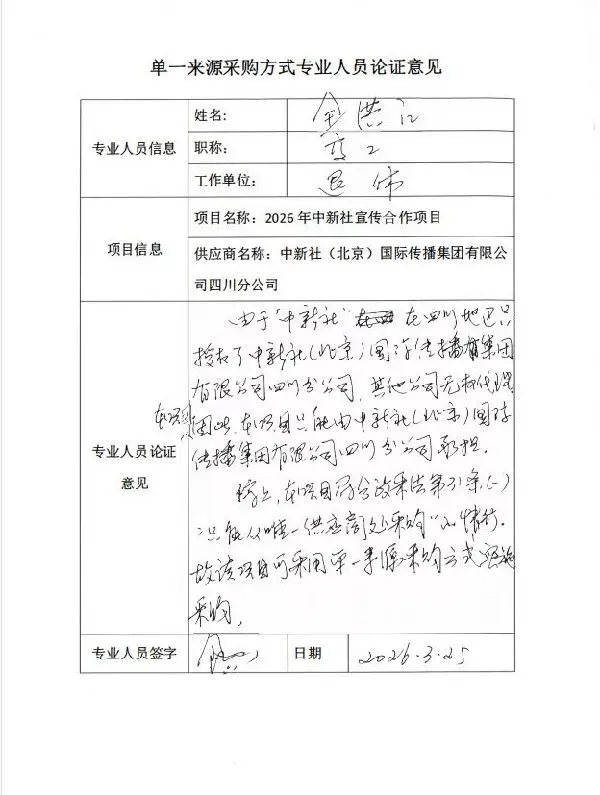 单一来源采购方式专业人员论证意见
专业人员信息
姓名:
金洪江
职称:
高工
工作单位:
退休
项目信息
项目名称: 2026年中新社宣传合作项目
供应商名称: 中新社（北京）国际传播集团有限公
司四川分公司
专业人员论证
意见
由于"中新社" 在四川地区只
授权了中新社(北京)国际传播集团
有限公司四川分公司, 其他公司无权代理
本项目
因此, 本项目只能由中新社(北京)国际
传播集团有限公司四川分公司承担.
综上, 本项目符合政采法第31条(一)
"只能从唯一供应商处采购"的情形.
故该项目可采用单一来源采购方式实施
采购.
专业人员签字
日期
2026.3.25